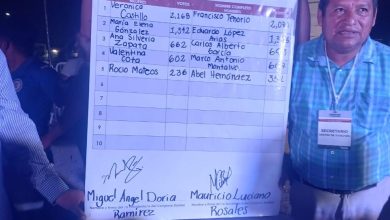 VOTOS
NOMBRE COMPLETO
1 Veronica Castillo 2,168 Francisco Tenorio 2,0
2 Maria Elena Gonzalez 1,392 Eduardo López Arias
3 Ana Silveria Zapata 662 Carlos Alberto García
4 Valentina Cota 602 Marco Antonio Montalvo
5 Rocio Mateos 236 Abel Hernández
6
7
8
9
10
Miguel Angel Doria Ramirez
Mauricio Luciano Rosales
SECRETARIO